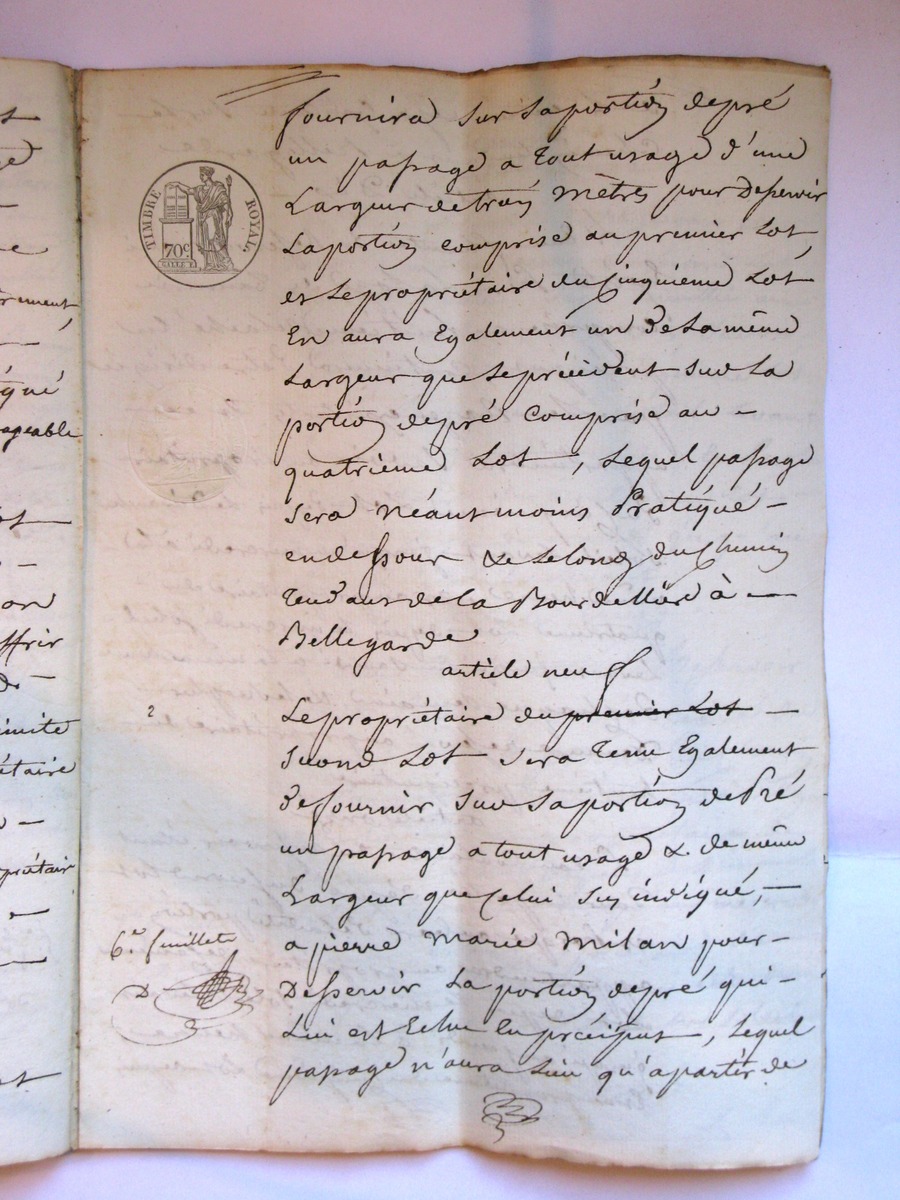 st
TIMBRE ROYAL
70c
rement,
iqué
ageable
on
ffrir
de -
imite
étaire
priétair
fournira sur sa portion de pré
un passage a tout usage d'une
Largeur de trois Mètres pour Desservir
La portion comprise au premier Lot,
et Le propriétaire du Cinquieme Lot
En aura Egalement un de La même
Largeur que Le précédent sur La
portion de pré Comprise au -
quatrieme Lot, Lequel passage
sera Néantmoins Pratiqué -
en dessous & Le Long du Chemin
Tendant de La Bourdellière à -
Bellegarde
article neuf
2
Le propriétaire du premier Lot -
second Lot sera Tenu Egalement
de fournir sur sa portion de Pré
un passage a tout usage & de même
Largeur que Celui sus indiqué, -
a pierre Marie Milan pour -
Desservir La portion de pré qui -
Lui est Echu En préciput, Lequel
passage n'aura Lieu qu'a partir de
6.e feuillet
D